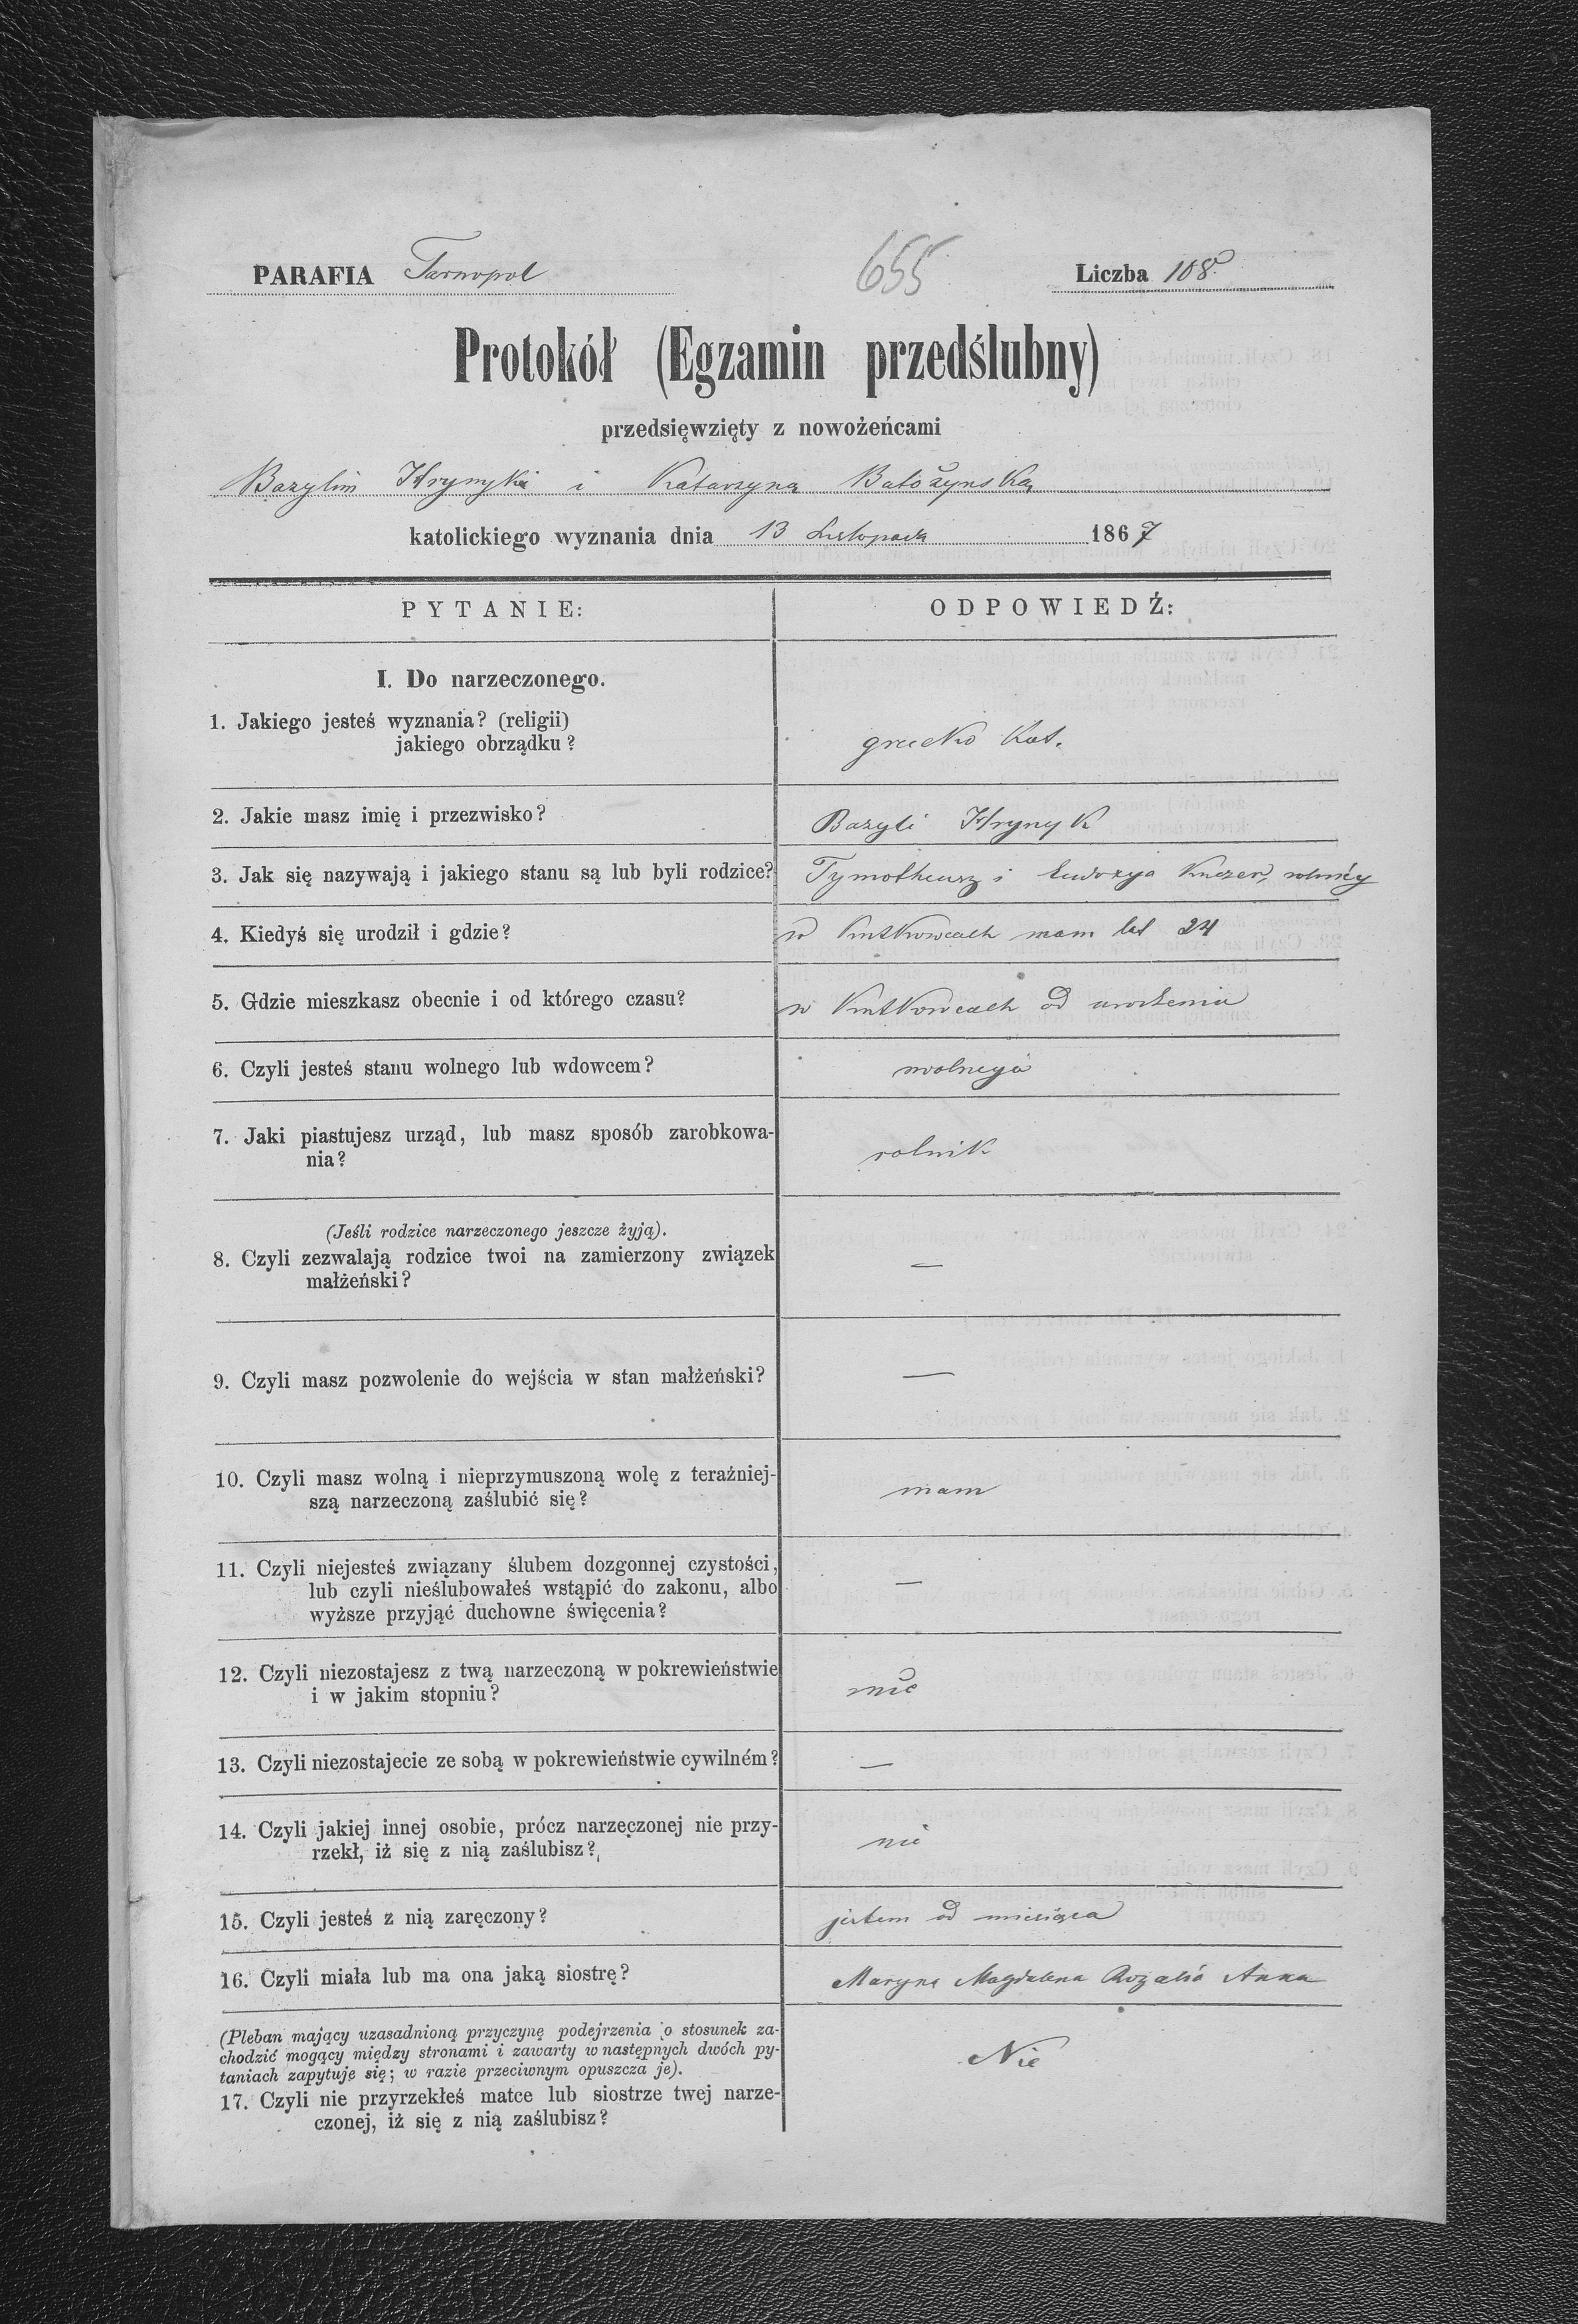 PARAFIA Tarnopol 655 Liczba 108
Protokół (Egzamin przedślubny)
przedsięwzięty z nowożeńcami
Bazylim Hrynyk i Katarzyną Batożynską
katolickiego wyznania dnia 13 Listopada 1867
PYTANIE: ODPOWIEDŹ:
I. Do narzeczonego.
1. Jakiego jesteś wyznania? (religii)
jakiego obrządku? grecko Kat.
2. Jakie masz imię i przezwisko? Bazyli Hrynyk
3. Jak się nazywają i jakiego stanu są lub byli rodzice? Tymotheusz i rolnicy
4. Kiedyś się urodził i gdzie? w Kutkowcach mam lat 24
5. Gdzie mieszkasz obecnie i od którego czasu? w Kutkowcach od urodzenia
6. Czyli jesteś stanu wolnego lub wdowcem? wolnego
7. Jaki piastujesz urząd, lub masz sposób zarobkowa-
nia? rolnik
(Jeśli rodzice narzeczonego jeszcze żyją).
8. Czyli zezwalają rodzice twoi na zamierzony związek
małżeński? —
9. Czyli masz pozwolenie do wejścia w stan małżeński? —
10. Czyli masz wolną i nieprzymuszoną wolę z teraźniej-
szą narzeczoną zaślubić się? mam
11. Czyli niejesteś związany ślubem dozgonnej czystości,
lub czyli nieślubowałeś wstąpić do zakonu, albo —
wyższe przyjąć duchowne święcenia?
12. Czyli niezostajesz z twą narzeczoną w pokrewieństwie
i w jakim stopniu? nie
13. Czyli niezostajecie ze sobą w pokrewieństwie cywilném? —
14. Czyli jakiej innej osobie, prócz narzeczonej nie przy-
rzekł, iż się z nią zaślubisz? nie
15. Czyli jesteś z nią zaręczony? jestem od miesiąca
16. Czyli miała lub ma ona jaką siostrę? Marynę Magdalena Rozalia Anna
(Pleban mający uzasadnioną przyczynę podejrzenia o stosunek za-
chodzić mogący między stronami i zawarty w następnych dwóch py- Nie
taniach zapytuje się; w razie przeciwnym opuszcza je).
17. Czyli nie przyrzekłeś matce lub siostrze twej narze-
czonej, iż się z nią zaślubisz?